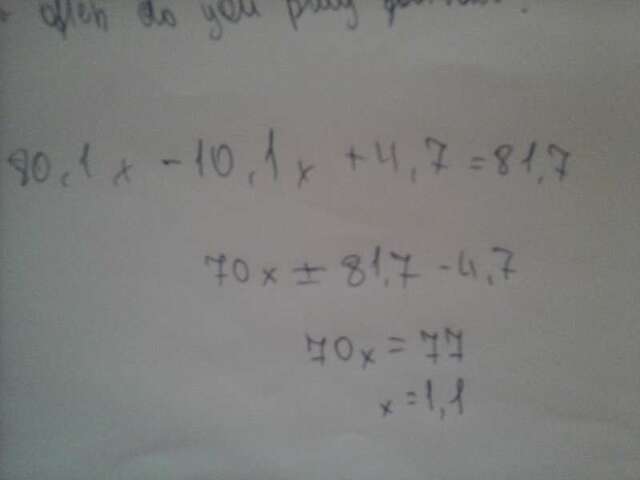 often do you play
80,1x - 10,1x + 4,7 = 81,7
70x = 81,7 - 4,7
70x = 77
x = 1,1